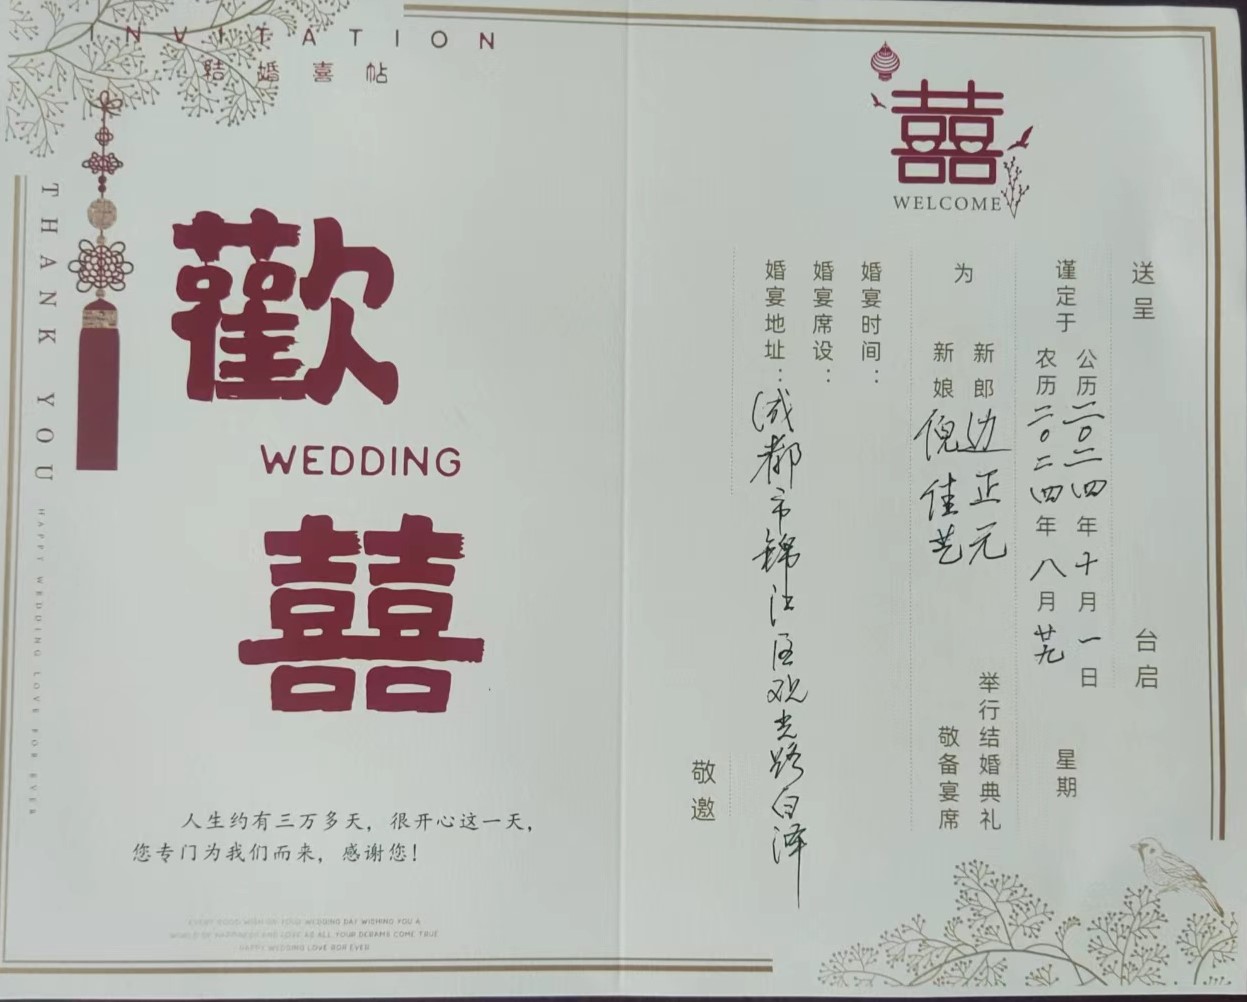 INVITATION
結婚喜帖
THANK YOU
HAPPY WEDDING LOVE FOR EVER
歡
WEDDING
囍
人生约有三万多天，很开心这一天，
您专门为我们而来，感谢您！
EVERY GOOD WISH ON YOUR WEDDING DAY WISHING YOU A
WORLD OF HAPPINESS AND LOVE AS ALL YOUR DERAMS COME TRUE
HAPPY WEDDING LOVE ROR EVER
囍
WELCOME
送呈 台启
谨定于
公历二〇二四年十月一日
农历二〇二四年八月廿九
星期
为
新郎边正元
新娘倪佳艺
举行结婚典礼
敬备宴席
婚宴时间：
婚宴席设：
婚宴地址：成都市锦江区观光路白泽
敬邀